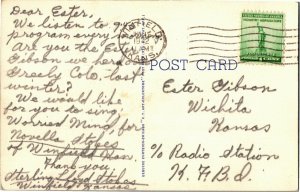 Dear Ester,
We listen to your
program every
Are you the Ester
Gibson we heard
Greely Colo, last
winter?
We would like
for you to sing
Worried Mind, for
Novella Stokes
of Winfield Kan.
Thank you
Sterling Lloyd Stokes
Winfield, Kansas
POST CARD
Ester Gibson
Wichita
Kansas
c/o Radio Station
K.F.B.I.